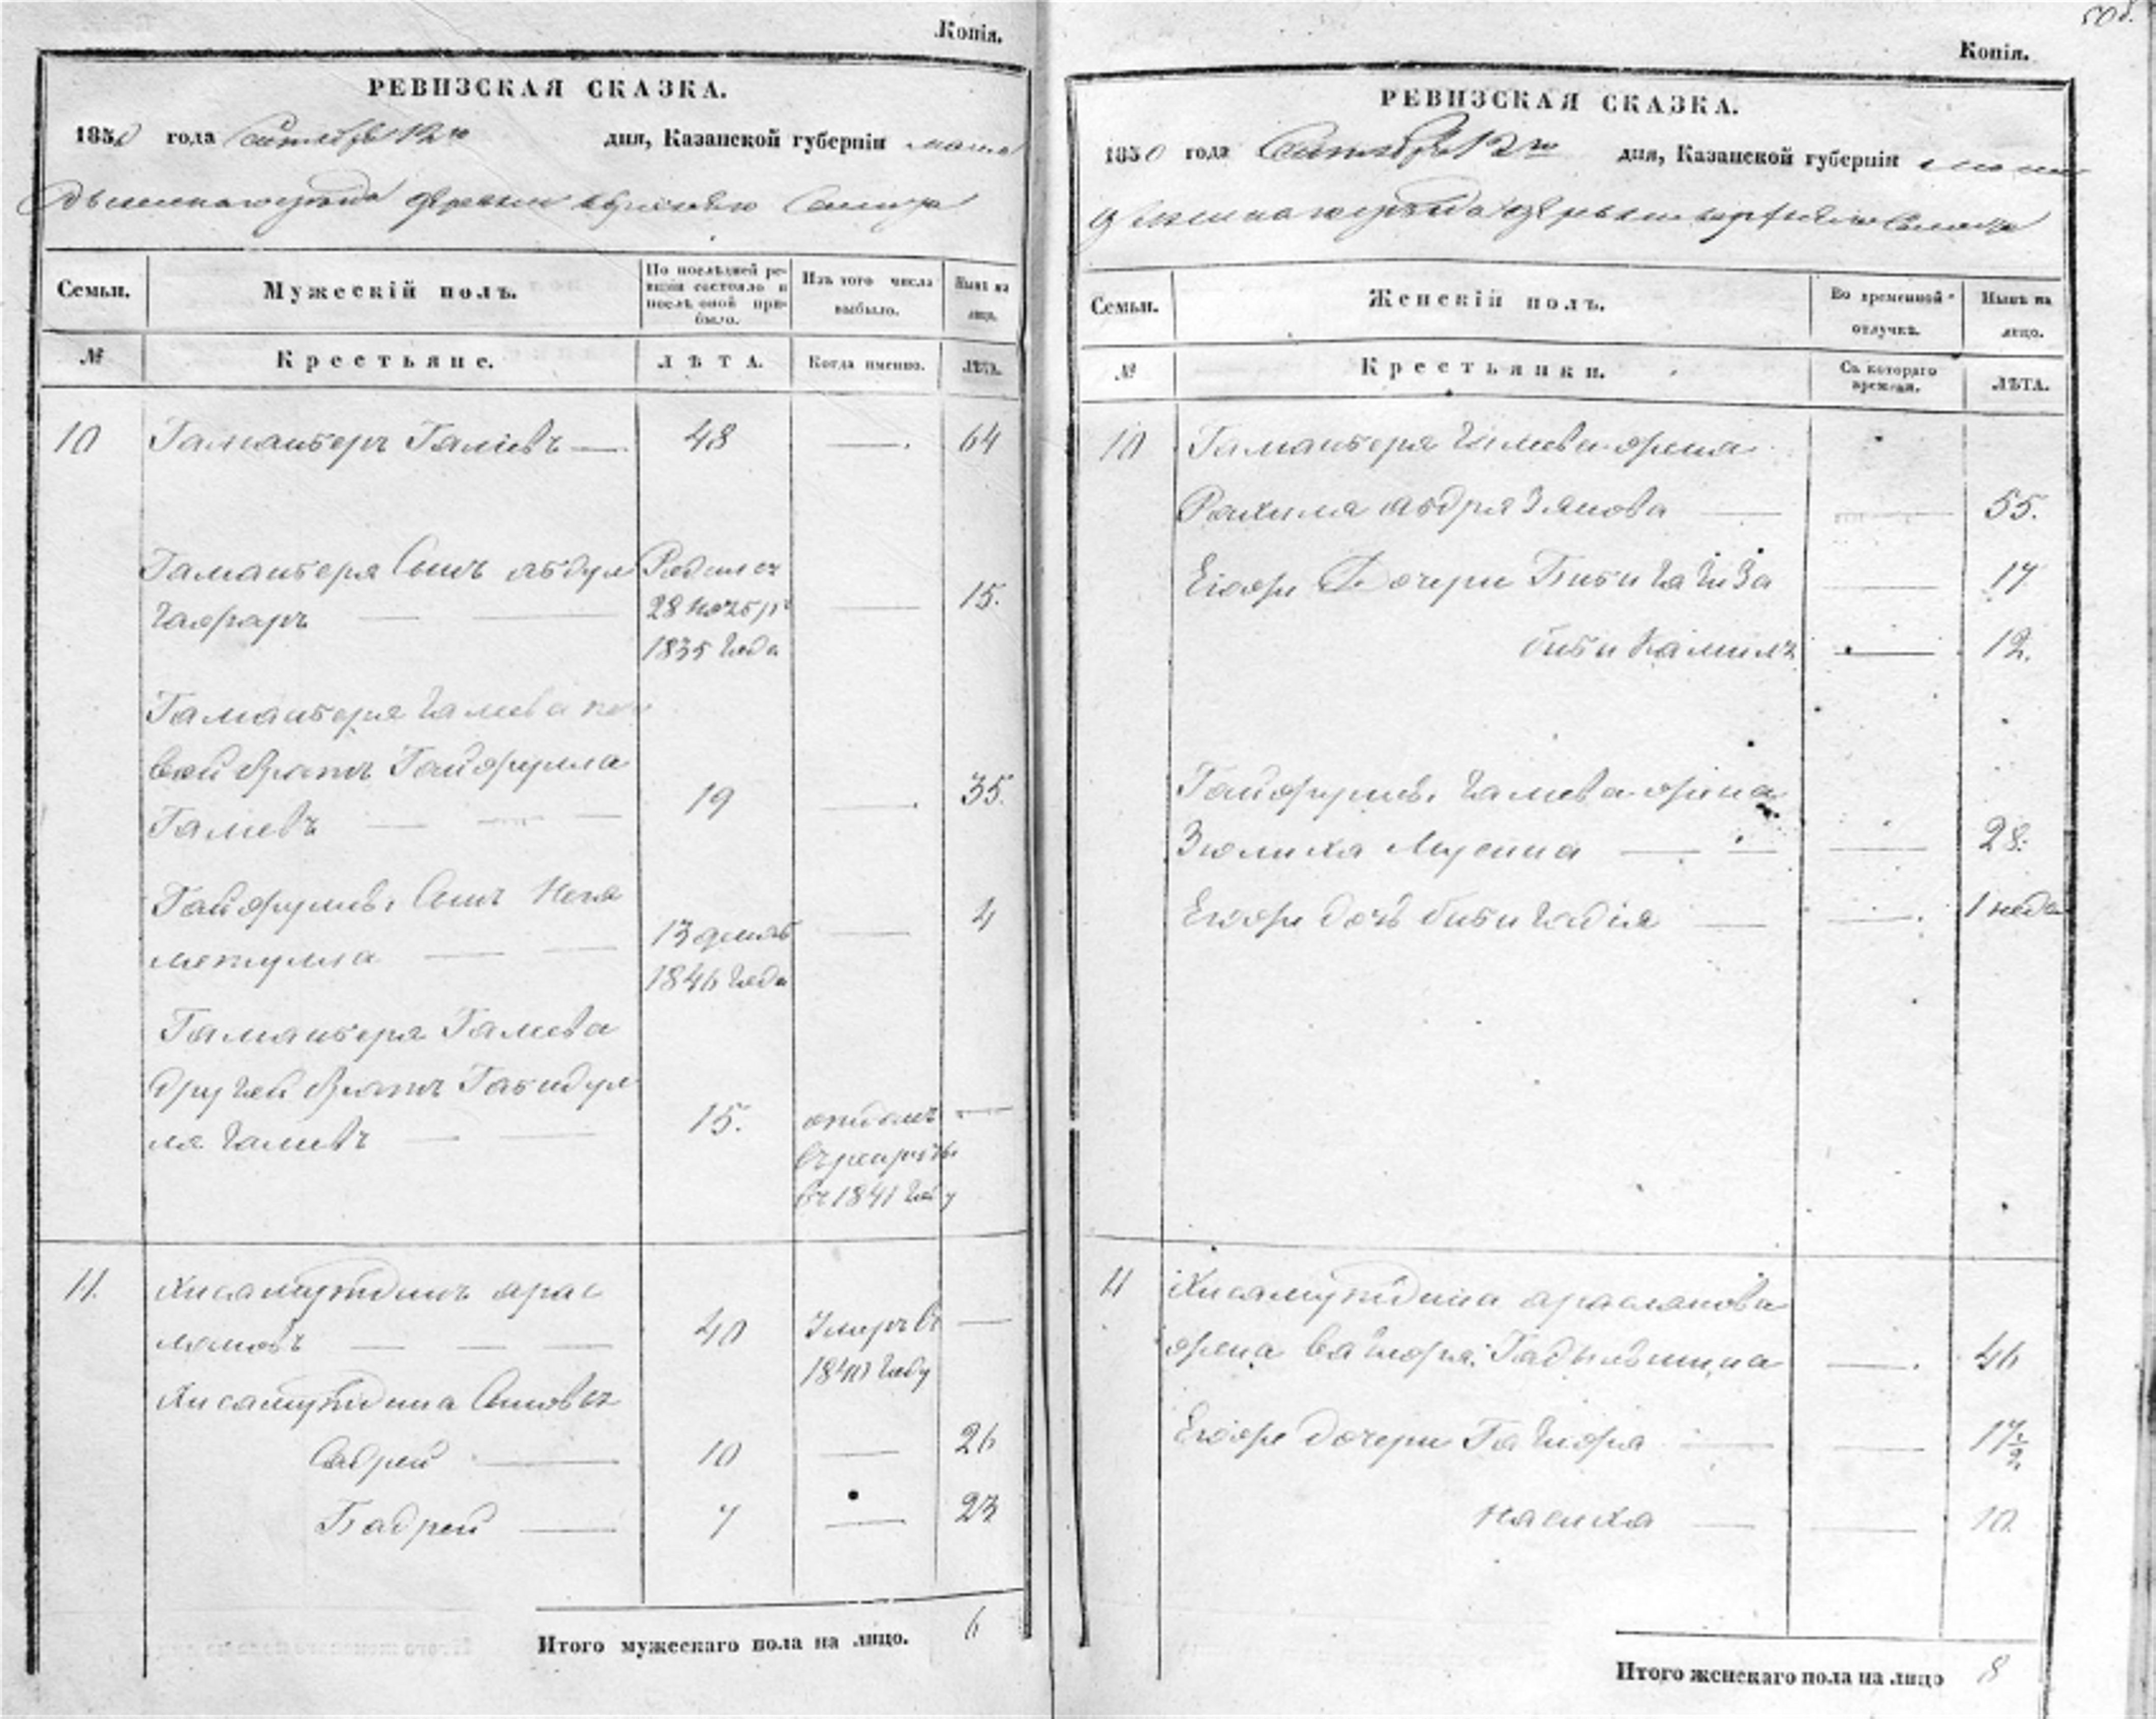 Копія.
РЕВИЗСКАЯ СКАЗКА.
1850 года Сентября 12го дня, Казанской губерніи мама
дышскаго уезда деревни
Семьи.
Мужескій полъ.
По послѣдней ре-
визіи состояло и
послѣ оной при-
было.
Изъ того числа
выбыло.
Нынѣ на
лицо.
№
Крестьяне.
ЛѢТА.
Когда именно.
ЛѢТА.
10 Гаманберъ Галіевъ — 48 — 64
Гаманбера Сынъ абдул Родился
гафаръ — — 28 ноября — 15.
1835 года
Гаманбера галиева
вой братъ Гайфулла
Галиевъ — — — 19 — 35.
Гайфуллы Сынъ Нега
метулла — — 13 — 4
1846 года
Гаманбера Галиева
другей братъ Габидул
ла галиевъ — — 15. отданъ —
врекруты
въ 1841 году
11. Хисамутдинъ арас
лановъ — — — 40 Умеръ въ —
1840 году
Хисамутдина Сыновья
Садрей — 10 — 26
Бадрей — 7 — 23
Итого мужескаго пола на лицо. 6
50б.
Копія.
РЕВИЗСКАЯ СКАЗКА.
1850 года Сентября 12го дня, Казанской губерніи мама
дышскаго уезда деревни
Семьи.
Женскій полъ.
Во временной
отлучкѣ.
Нынѣ на
лицо.
№
Крестьянки.
Съ котораго
времени.
ЛѢТА.
10 Гаманбера Галиева жена
Рахима абдрязякова — — 55.
Егоже Дочери Биби — 17
биби Камиля — 12.
Гайфуллы Галиева жена
Зюлиха Мусина — — — 28.
Егоже дочь биби гадія — — 1 неде
11 Хисамутдина арасланова
жена — 46
Егоже дочери — — 17½
Насиха — — 10
Итого женскаго пола на лицо 8